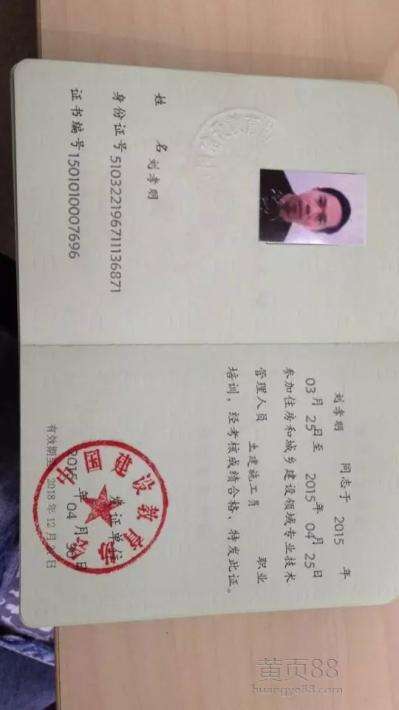 姓 名 刘孝明
身份证号 510322196711136871
证书编号 1501010007696
刘孝明 同志于 2015 年
03月 25日至 2015年 04月 25日
参加住房和城乡建设领域专业技术
管理人员 土建施工员 职业
培训,经考核成绩合格,特发此证。
中国建设教育协会
发证单位
年 04 月 30日
有效期 2018 年 12 月
黄页88
huangye88.com